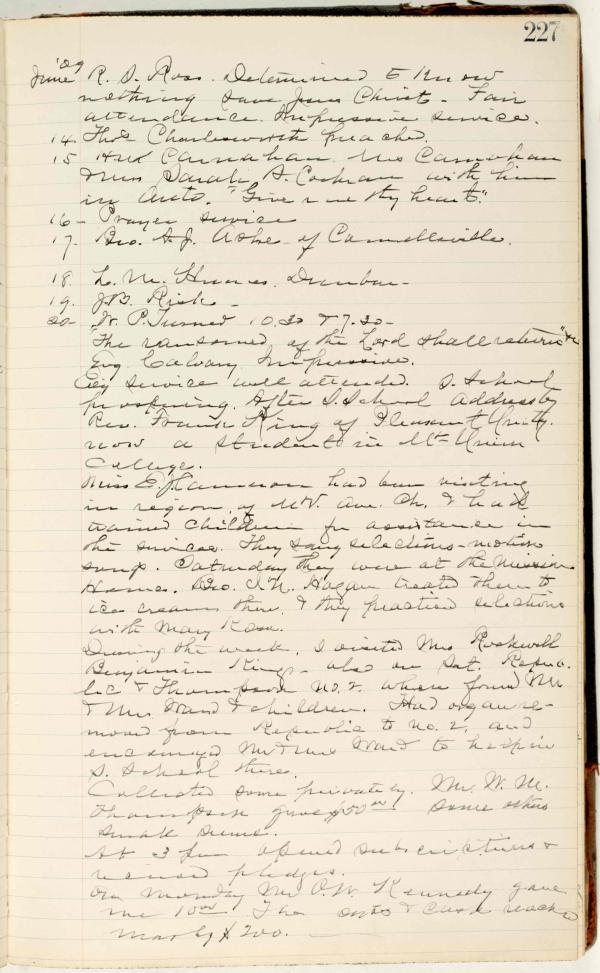 227
June '09 R. S. Ross. Determined to Know
nothing save Jesus Christ - Fair
attendance. Impressive service.
14. Thos Charlesworth preached.
15 Carnahan. Mrs Carnahan
& Miss Sarah A. Cochran with him
in Auto. "Give me thy heart."
16 - Prayer service
17. Bro. A. J. Ashe - of Connellsville.
18. L. M. Dunbar -
19. J. B. Risk -
20 - W. P. Turner 10.30 & 7.30 -
The ransomed of the Lord shall return" &c
Evg. Calvary Impressive.
Evg service well attended. S. School
prospering. After S. School Address by
Rev. Frank King of Pleasant Unity.
now a student in Mt Union
College.
Miss E. had been visiting
in region of Ave. Ch. & had
trained children for assistance in
the services. They sang selections - motion
songs. Saturday they were at the Mission
Home. Bro. I. N. Hagan treated them to
ice cream there, & they practiced selections
with Mary Rose.
During the week, I visited Mrs Rockwell
Benjamin Kings - also on Sat. Repub-
lic & Thompson No. 2. where found Mr
& Mrs. Ward & children. Had organ re-
moved from Republic to No. 2, and
encouraged Mr & Mrs Ward to help in
S. School there.
Collected some privately. Mr. W. M.
Thompson gave $50.00 Some others
small sums.
At 3 pm opened subscriptions &
renewed pledges.
On Monday Mr. P. W. Kennedy gave
me 10.00. The & cash reached
nearly $200.